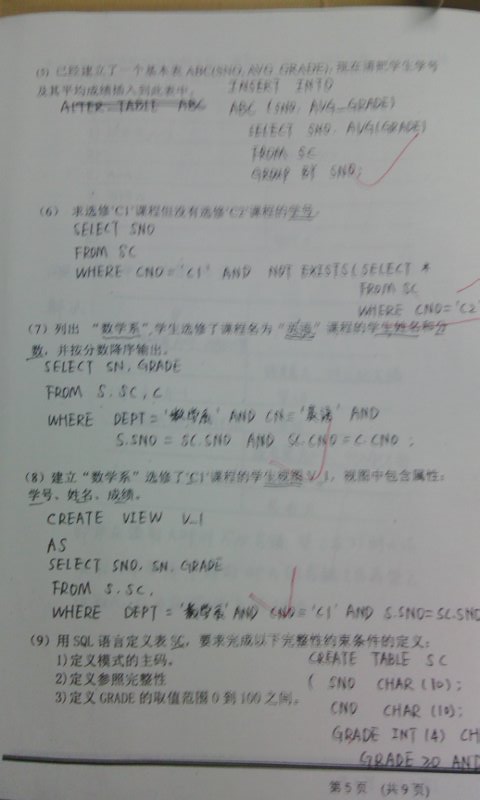 (5) 已经建立了一个基本表 ABC(SNO, AVG_GRADE), 现在请把学生学号
及其平均成绩插入到此表中。
ALTER TABLE ABC
INSERT INTO
ABC (SNO, AVG_GRADE)
SELECT SNO, AVG(GRADE)
FROM SC
GROUP BY SNO;
(6) 求选修'C1'课程但没有选修'C2'课程的学号
SELECT SNO
FROM SC
WHERE CNO='C1' AND NOT EXISTS(SELECT *
FROM SC
WHERE CNO='C2'
(7) 列出 “数学系”学生选修了课程名为“英语”课程的学生姓名和分
数，并按分数降序输出。
SELECT SN, GRADE
FROM S, SC, C
WHERE DEPT='数学系' AND CN='英语' AND
S.SNO = SC.SNO AND SC.CNO = C.CNO ;
(8) 建立“数学系”选修了'C1'课程的学生视图V_1，视图中包含属性：
学号、姓名、成绩。
CREATE VIEW V_1
AS
SELECT SNO, SN, GRADE
FROM S, SC,
WHERE DEPT='数学系' AND CNO='C1' AND S.SNO=SC.SNO
(9) 用SQL语言定义表SC，要求完成以下完整性约束条件的定义：
1)定义模式的主码。
2)定义参照完整性
3)定义GRADE的取值范围0到100之间。
CREATE TABLE SC
( SNO CHAR (10);
CNO CHAR (10);
GRADE INT (4) CH
GRADE ≥0 AND
第 5 页 (共 9 页)